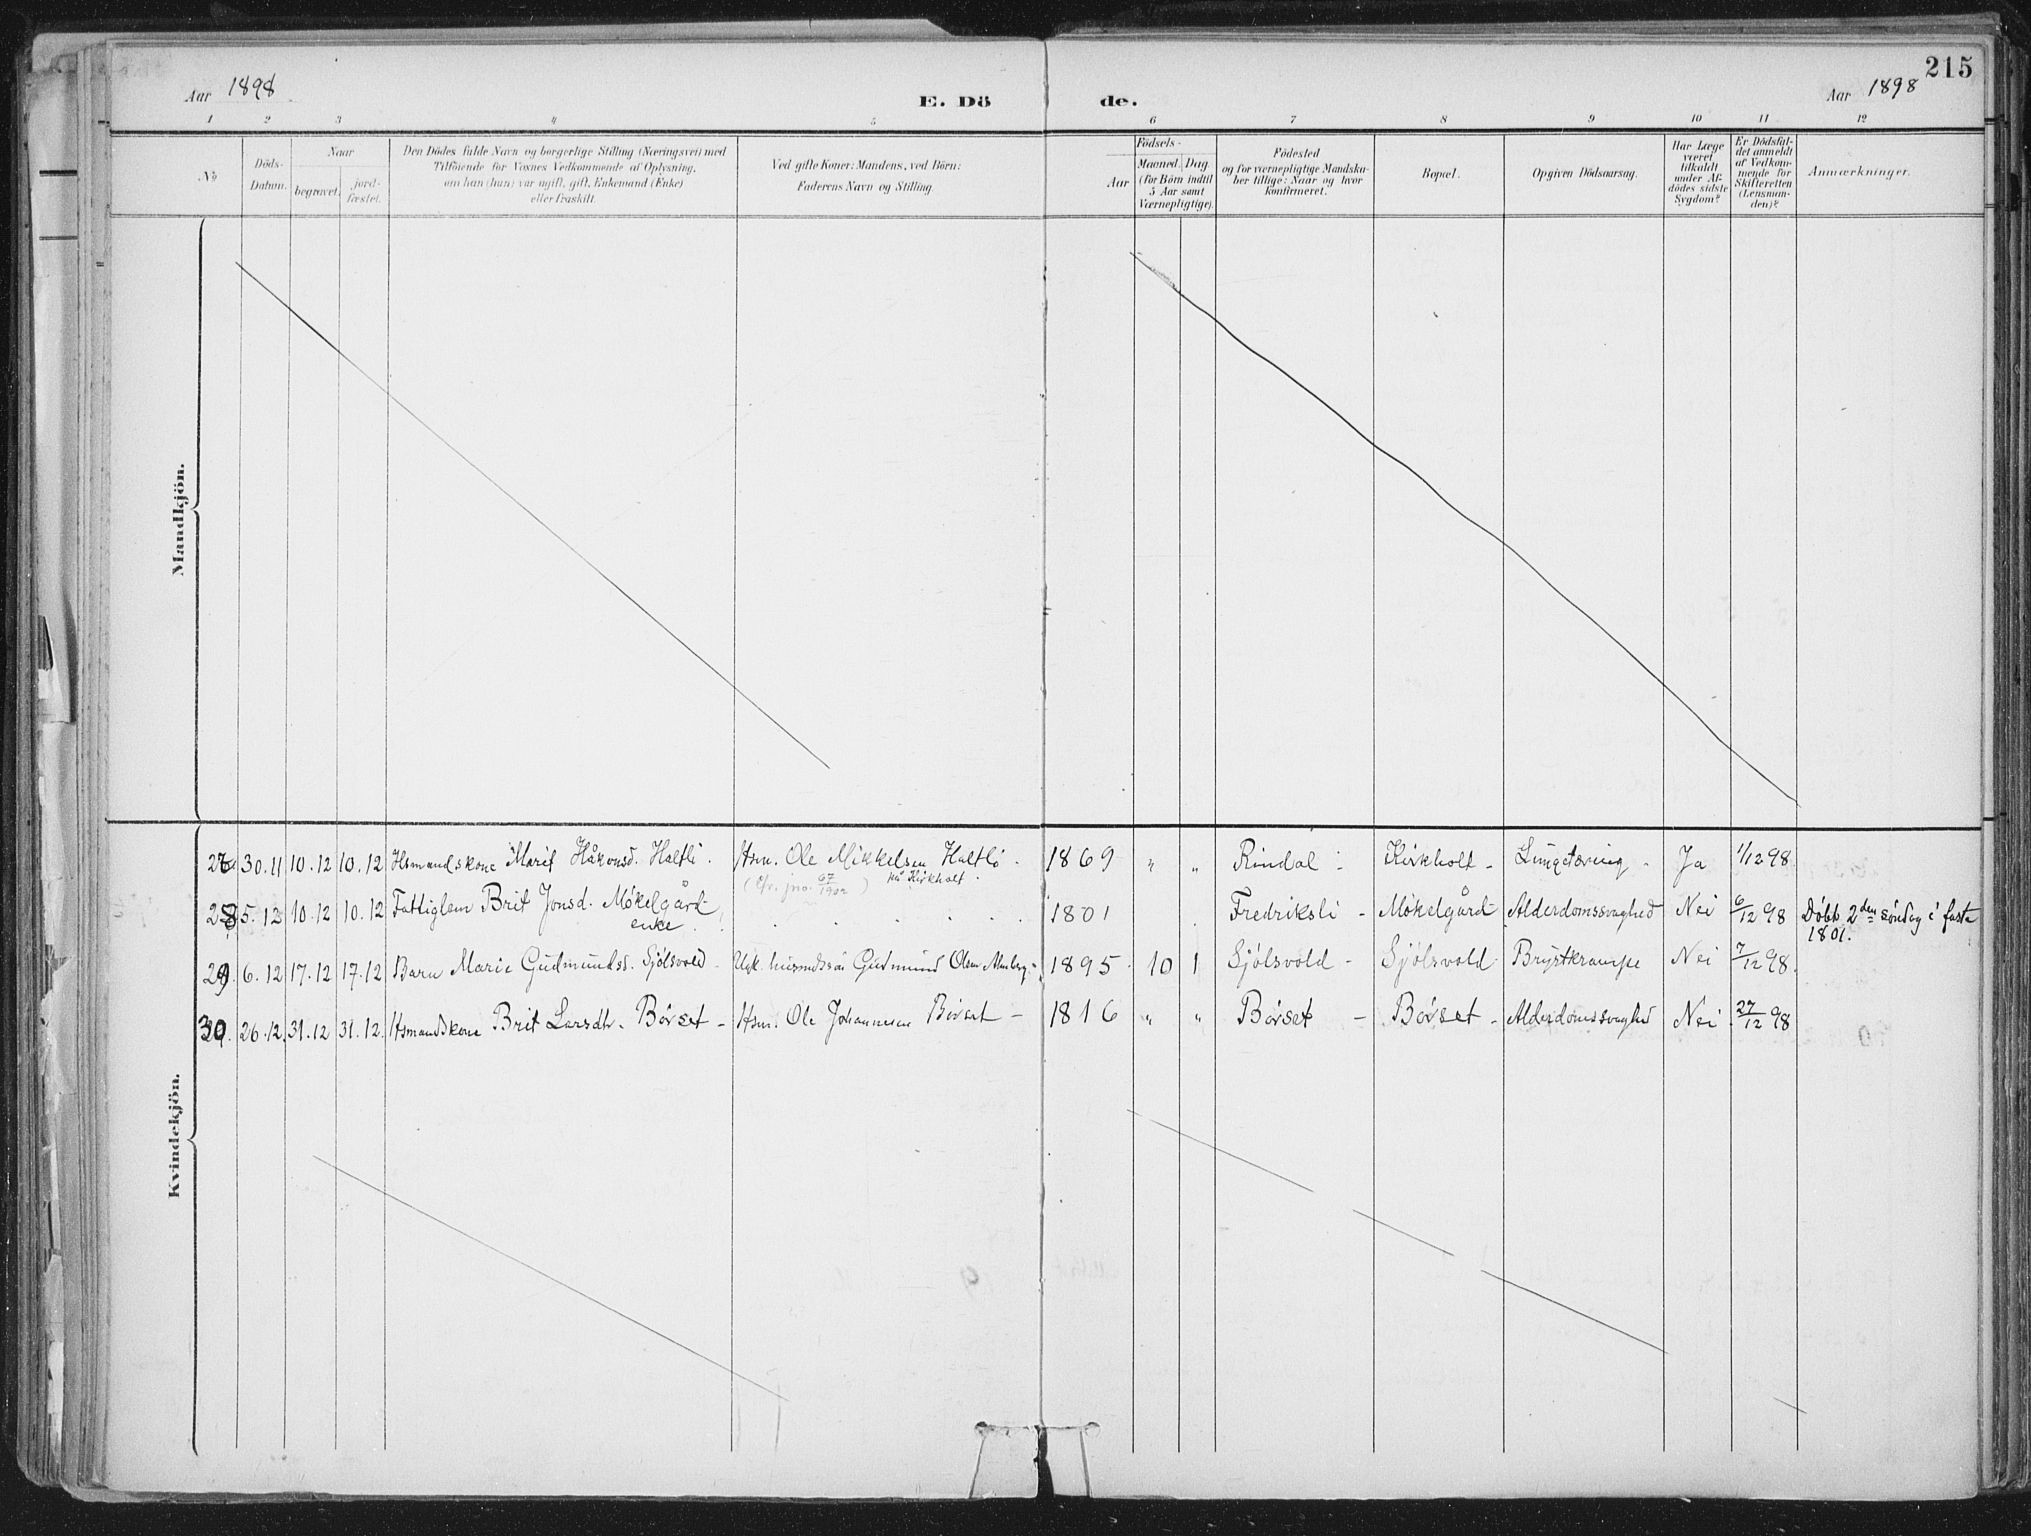 215
Aar 1898
E. Dö
de.
Aar 1898
1 2 3 4 5 6 7 8 9 10 11 12
No
Döds-
Datum.
Naar
begravet.
jord-
fæstet.
Den Dödes fulde Navn og borgerlige Stilling (Næringsvei) med
Tilföiende for Voxnes Vedkommende af Oplysning,
om han (hun) var ugift, gift, Enkemand (Enke)
eller fraskilt.
Ved gifte Koner: Mandens, ved Börn:
Faderens Navn og Stilling.
Födsels-
Aar
Maaned.
Dag
(for Börn indtil
5 Aar samt
Værnepligtige).
Födested
og for værnepligtige Mandska-
ber tillige: Naar og hvor
konfirmeret.
Bopæl.
Opgiven Dödsaarsag.
Har Læge
været
tilkaldt
under Af-
dödes sidste
Sygdom?
Er Dödsfal-
det anmeldt
af Vedkom-
mende for
Skifteretten
(Lensman-
den)?
Anmærkninger.
Mandkjön.
Kvindekjön.
30.11 10.12 10.12 Hsmandskone Marit Håkonsd. Haltli. Hsm. Ole Mikkelsen Haltli. 1869 " " Rindal - Kirkholt - Lungetæring - Ja 1/12 98
(Cfr. jno. 67/1902) på Kirkholt.
28 5.12 10.12 10.12 Fattiglem Brit Jonsd. Mökelgård 1801 Fredriksli - Mökelgård Alderdomssvaghed Nei 6/12 98 Döbt 2den söndag i faste
enke. 1801.
29. 6.12 17.12 17.12 Barn Marie Gudmundsd. Sjölsvold Gudmund Olsen 1895 10 1 Sjölsvold - Sjölsvold Brystkrampe Nei 7/12 98.
30. 26.12. 31.12 31.12. Hsmandskone Brit Larsdtr. Börset - Hsm. Ole Johannesen Börset - 1816 " " Börset - Börset - Alderdomssvaghed Nei 27/12 98